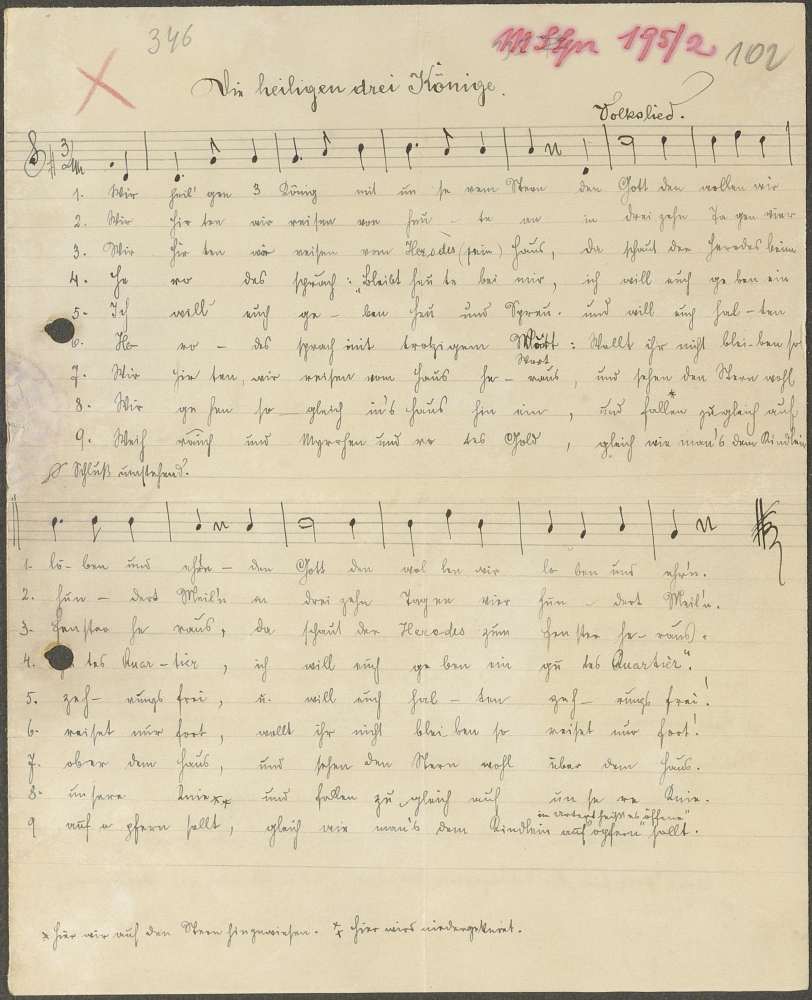 346
195/2 102
Die heiligen drei Könige.
Volkslied.
1. Wir heil' gen 3 König mit un se rem Stern den Gott den wollen wir
2. Wir hir ten wir reisen von heu - te an in drei zehn Ta gen vier
3. Wir hir ten wir reisen vom Herodes (sein) Haus, da schaut der Herodes beim
4. He ro des sprach: „Bleibt heu te bei mir, ich will euch ge ben ein
5. Ich will euch ge - ben Heu und Spreu. und will euch hal - ten
6. He ro - des sprach mit trotzigem Wort: Wollt ihr nicht blei-ben so
Wort
7. Wir hir ten, wir reisen vom Haus he - raus, und sehen den Stern wohl
8. Wir ge hen so - gleich in's Haus hin ein, und fallen* zugleich auf
9. Weih rauch und Myrrhen und ro tes Gold, gleich wie man's dem Kindlein
Schluß umstehend.
1. lo-ben und ehr'n - den Gott den wol len wir lo ben und ehr'n.
2. hun - dert Meil'n in drei zehn Tagen vier hun - dert Meil'n.
3. Fenster he raus, da schaut der Herodes zum Fen ster he-raus.
4. tes Quar-tier, ich will euch ge ben ein gu tes Quartier".
5. zeh - rungs frei, u. will euch hal - ten zeh - rungs frei!
6. reiset nur fort, wollt ihr nicht blei ben so reiset nur fort!
7. ober dem Haus, und sehen den Stern wohl über dem Haus.
8. unsere Knie** und fallen zu gleich auf un se re Knie.
9 auf o pfern sollt, gleich wie man's dem Kindlein auf opfern" sollt.
heißt es "öffene"
* Hier wir auf den Stern hingewiesen. ** Hier wird niedergekniet.